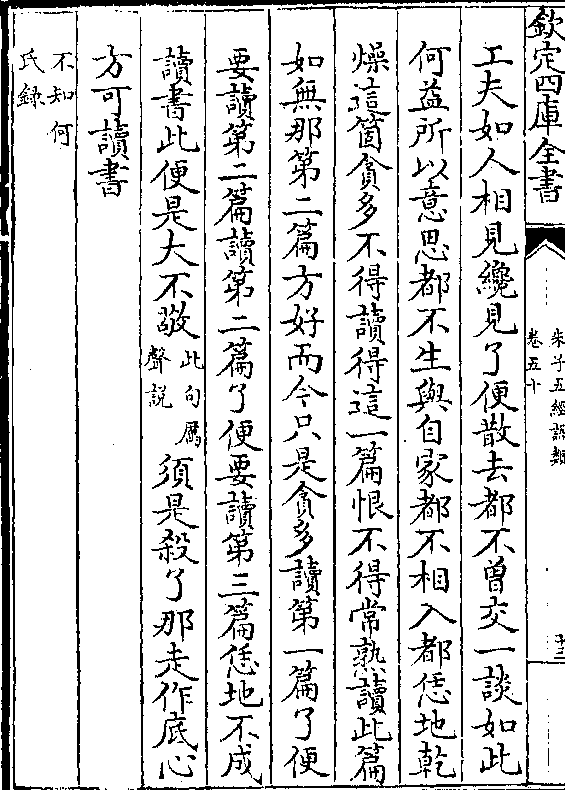 欽定四庫全書
朱子五經語類
卷五十
十三
工夫如人相見纔見了便散去都不曾交一談如此
何益所以意思都不生與自家都不相入都恁地乾
燥這箇貪多不得讀得這一篇恨不得常熟讀此篇
如無那第二篇方好而今只是貪多讀第一篇了便
要讀第二篇讀第二篇了便要讀第三篇恁地不成
讀書此便是大不敬此句厲聲説須是殺了那走作底心
方可讀書
不知何
氏録